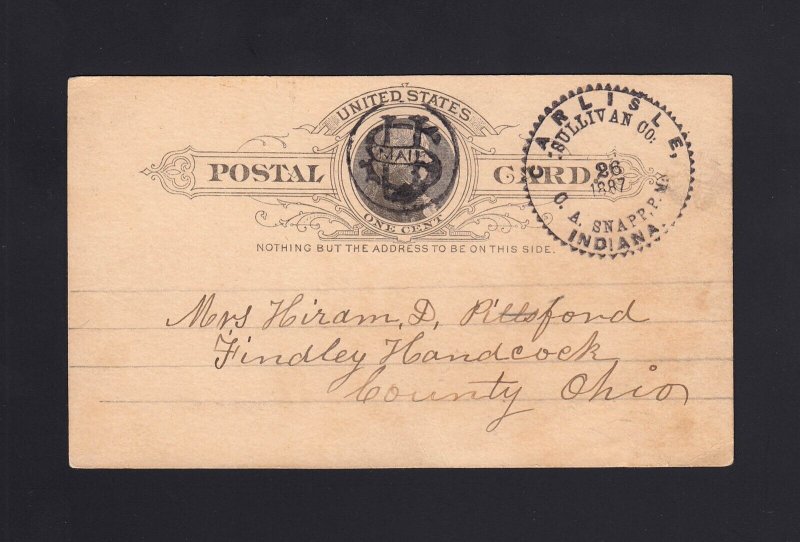 UNITED STATES
POSTAL CARD.
US MAIL
ONE CENT
NOTHING BUT THE ADDRESS TO BE ON THIS SIDE.
CARLISLE,
SULLIVAN CO:
26
1887
O. A. SNAPP, P. M.
INDIANA
Mrs Hiram, D, Pittsford
Findley Handcock
County Ohio